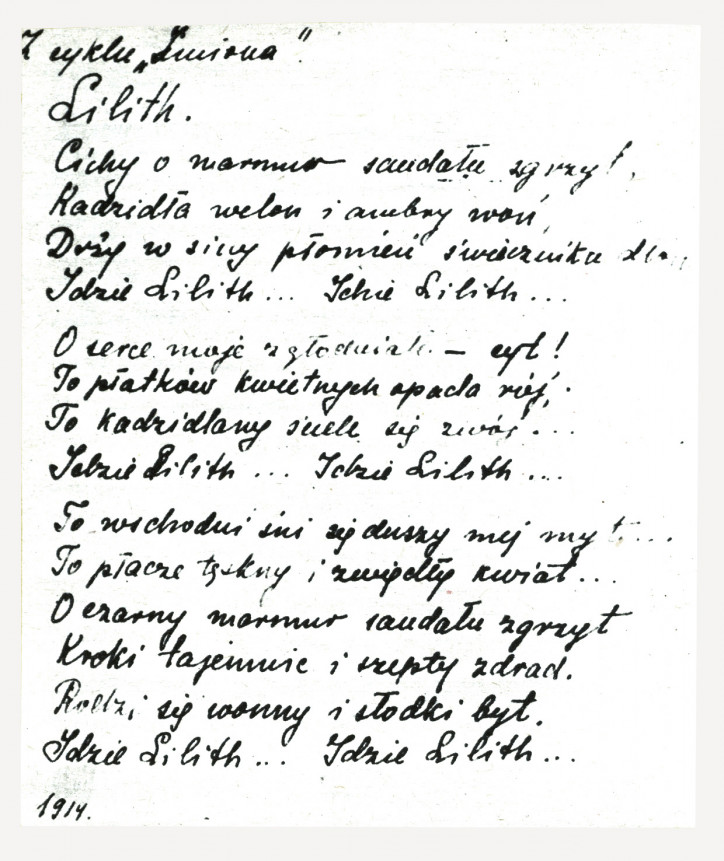 Z cyklu „Imiona"
Lilith.
Cichy o marmur sandału zgrzyt,
Kadzidła welon i ambry woń,
Drży w siny płomień świecznika
Idzie Lilith... Idzie Lilith...
O serce moje zgłodniałe — cyt!
To płatków kwietnych opada rój,
To kadzidlany ściele się zwój...
Idzie Lilith... Idzie Lilith...
To wschodni śni się duszy mej myt...
To płacze tęskny i zwiędły kwiat...
O czarny marmur sandału zgrzyt
Kroki tajemnic i szepty zdrad.
Rodzi się wonny i słodki byt.
Idzie Lilith... Idzie Lilith...
1914.